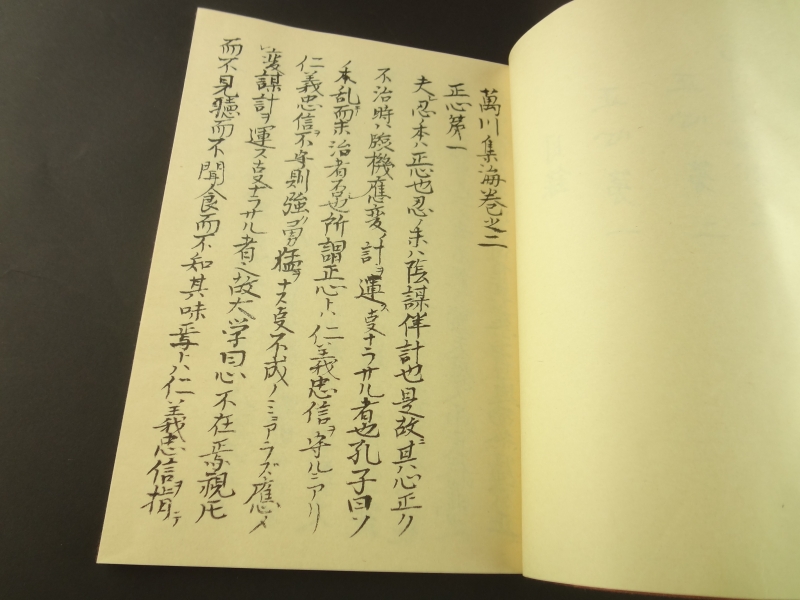 萬川集海巻之二
正心第一
夫忍ノ本ハ正心也忍ノ末ハ陰謀佯計也是故ニ其心正ク
不治時ハ臨機應変ノ計ヲ運ス叓ナラサル者也孔子曰ソ
ノ本乱而末治者否也所謂正心トハ仁義忠信ヲ守ルニアリ
仁義忠信ヲ不守則強勇猛ヲナス叓不成ノミニアラズ應メ
変謀計ヲ運ス叓ナラサル者也故大学曰心不在焉視𪜈
而不見聴而不聞食而不知其味焉トハ仁義忠信ヲ指テ